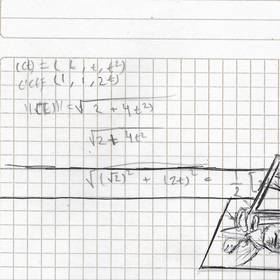 r(t) = (t, t, t²)
r'(t) (1, 1, 2t)
||r'(t)|| = √(2 + 4t²)
√(2 + 4t²)
√((√2)² + (2t)² = 1/2 [